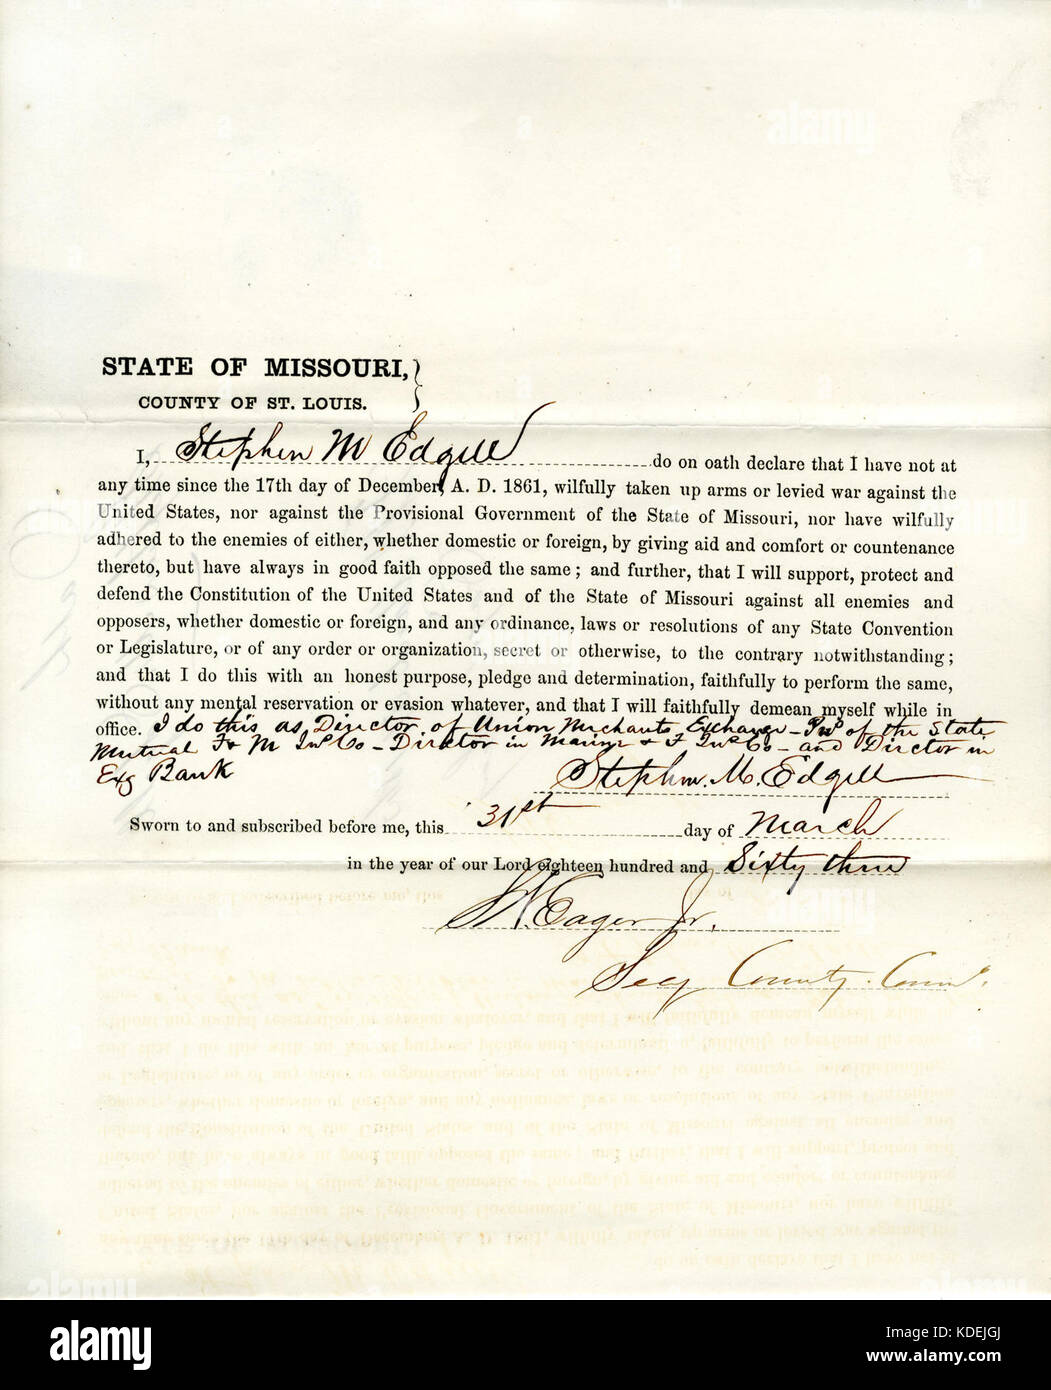 STATE OF MISSOURI,
COUNTY OF ST. LOUIS.
I, Stephen M Edgell do on oath declare that I have not at
any time since the 17th day of December, A. D. 1861, wilfully taken up arms or levied war against the
United States, nor against the Provisional Government of the State of Missouri, nor have wilfully
adhered to the enemies of either, whether domestic or foreign, by giving aid and comfort or countenance
thereto, but have always in good faith opposed the same; and further, that I will support, protect and
defend the Constitution of the United States and of the State of Missouri against all enemies and
opposers, whether domestic or foreign, and any ordinance, laws or resolutions of any State Convention
or Legislature, or of any order or organization, secret or otherwise, to the contrary notwithstanding;
and that I do this with an honest purpose, pledge and determination, faithfully to perform the same,
without any mental reservation or evasion whatever, and that I will faithfully demean myself while in
office. I do this as Director of Union Merchants Exchange - of the State
Mutual F & M Ins Co - Director in Marine & F Ins Co - and Director in
Exg Bank
Stephen. M. Edgell
Sworn to and subscribed before me, this 31st day of March
in the year of our Lord eighteen hundred and Sixty three
Eager Jr.
Secy County. Comn.
alamy
alamy
Image ID: KDEJGJ
www.alamy.com